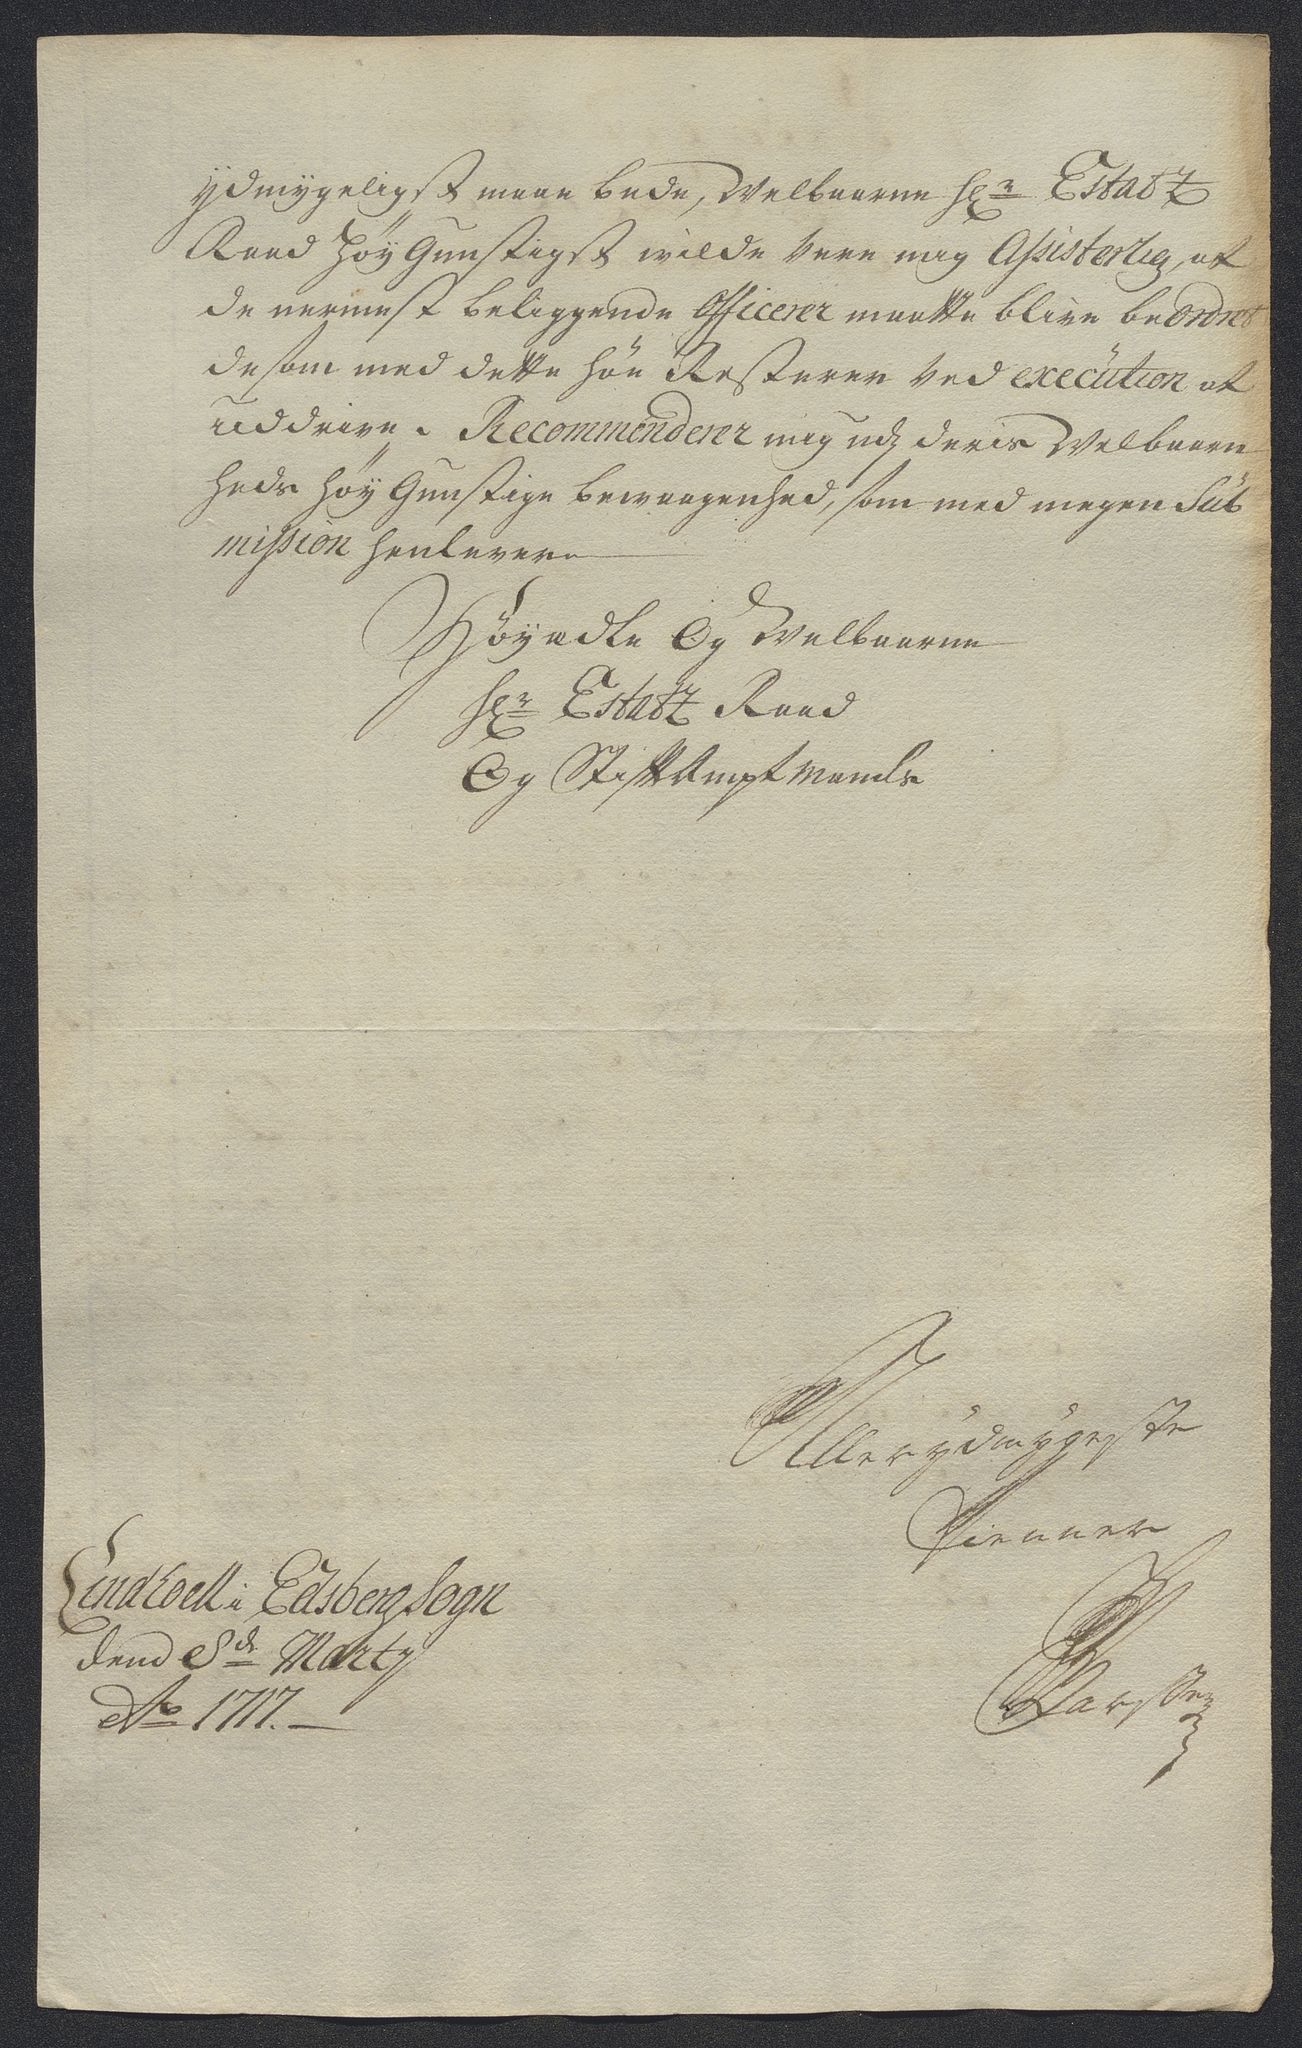 ydmygeligst maae bede, Welbaarne Hr Estatz
Raad Høy Gunstigst wilde vere mig Assisterlig, at
de nermest beliggende Officerer maatte blive beordret
de som med dette høe Resterer ved execution at
uddrive. Recommenderer mig udj deris Welbaarn
heds høy Gunstige bewaagenhed, som med megen Sub
mission henlever
Høyædle Og Welbaarne
Hr Estatz Raad
Og Stiftamptmands
Allerydmygeste
Tienner
Lindhoell i Edsberg Sogn
dend 8de Marty
Ao 1717.